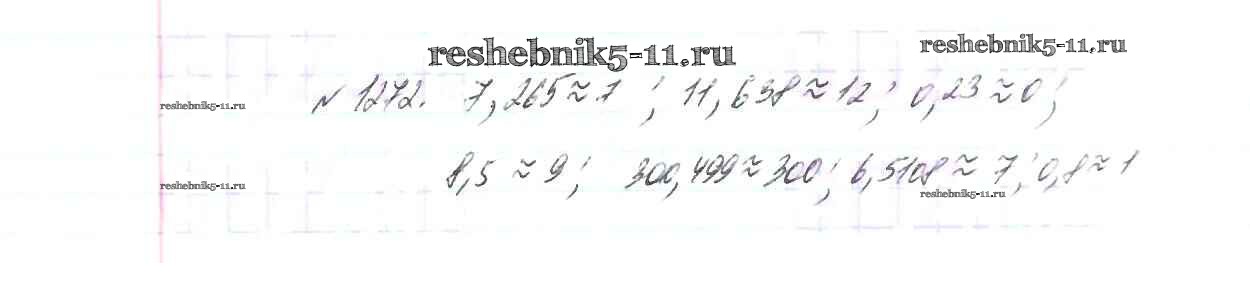 reshebnik5-11.ru
reshebnik5-11.ru
reshebnik5-11.ru
№ 1272. 7,265 ≈ 7 ; 11,638 ≈ 12 ; 0,23 ≈ 0 ;
8,5 ≈ 9 ; 300,499 ≈ 300 ; 6,5108 ≈ 7 ; 0,8 ≈ 1
reshebnik5-11.ru
reshebnik5-11.ru